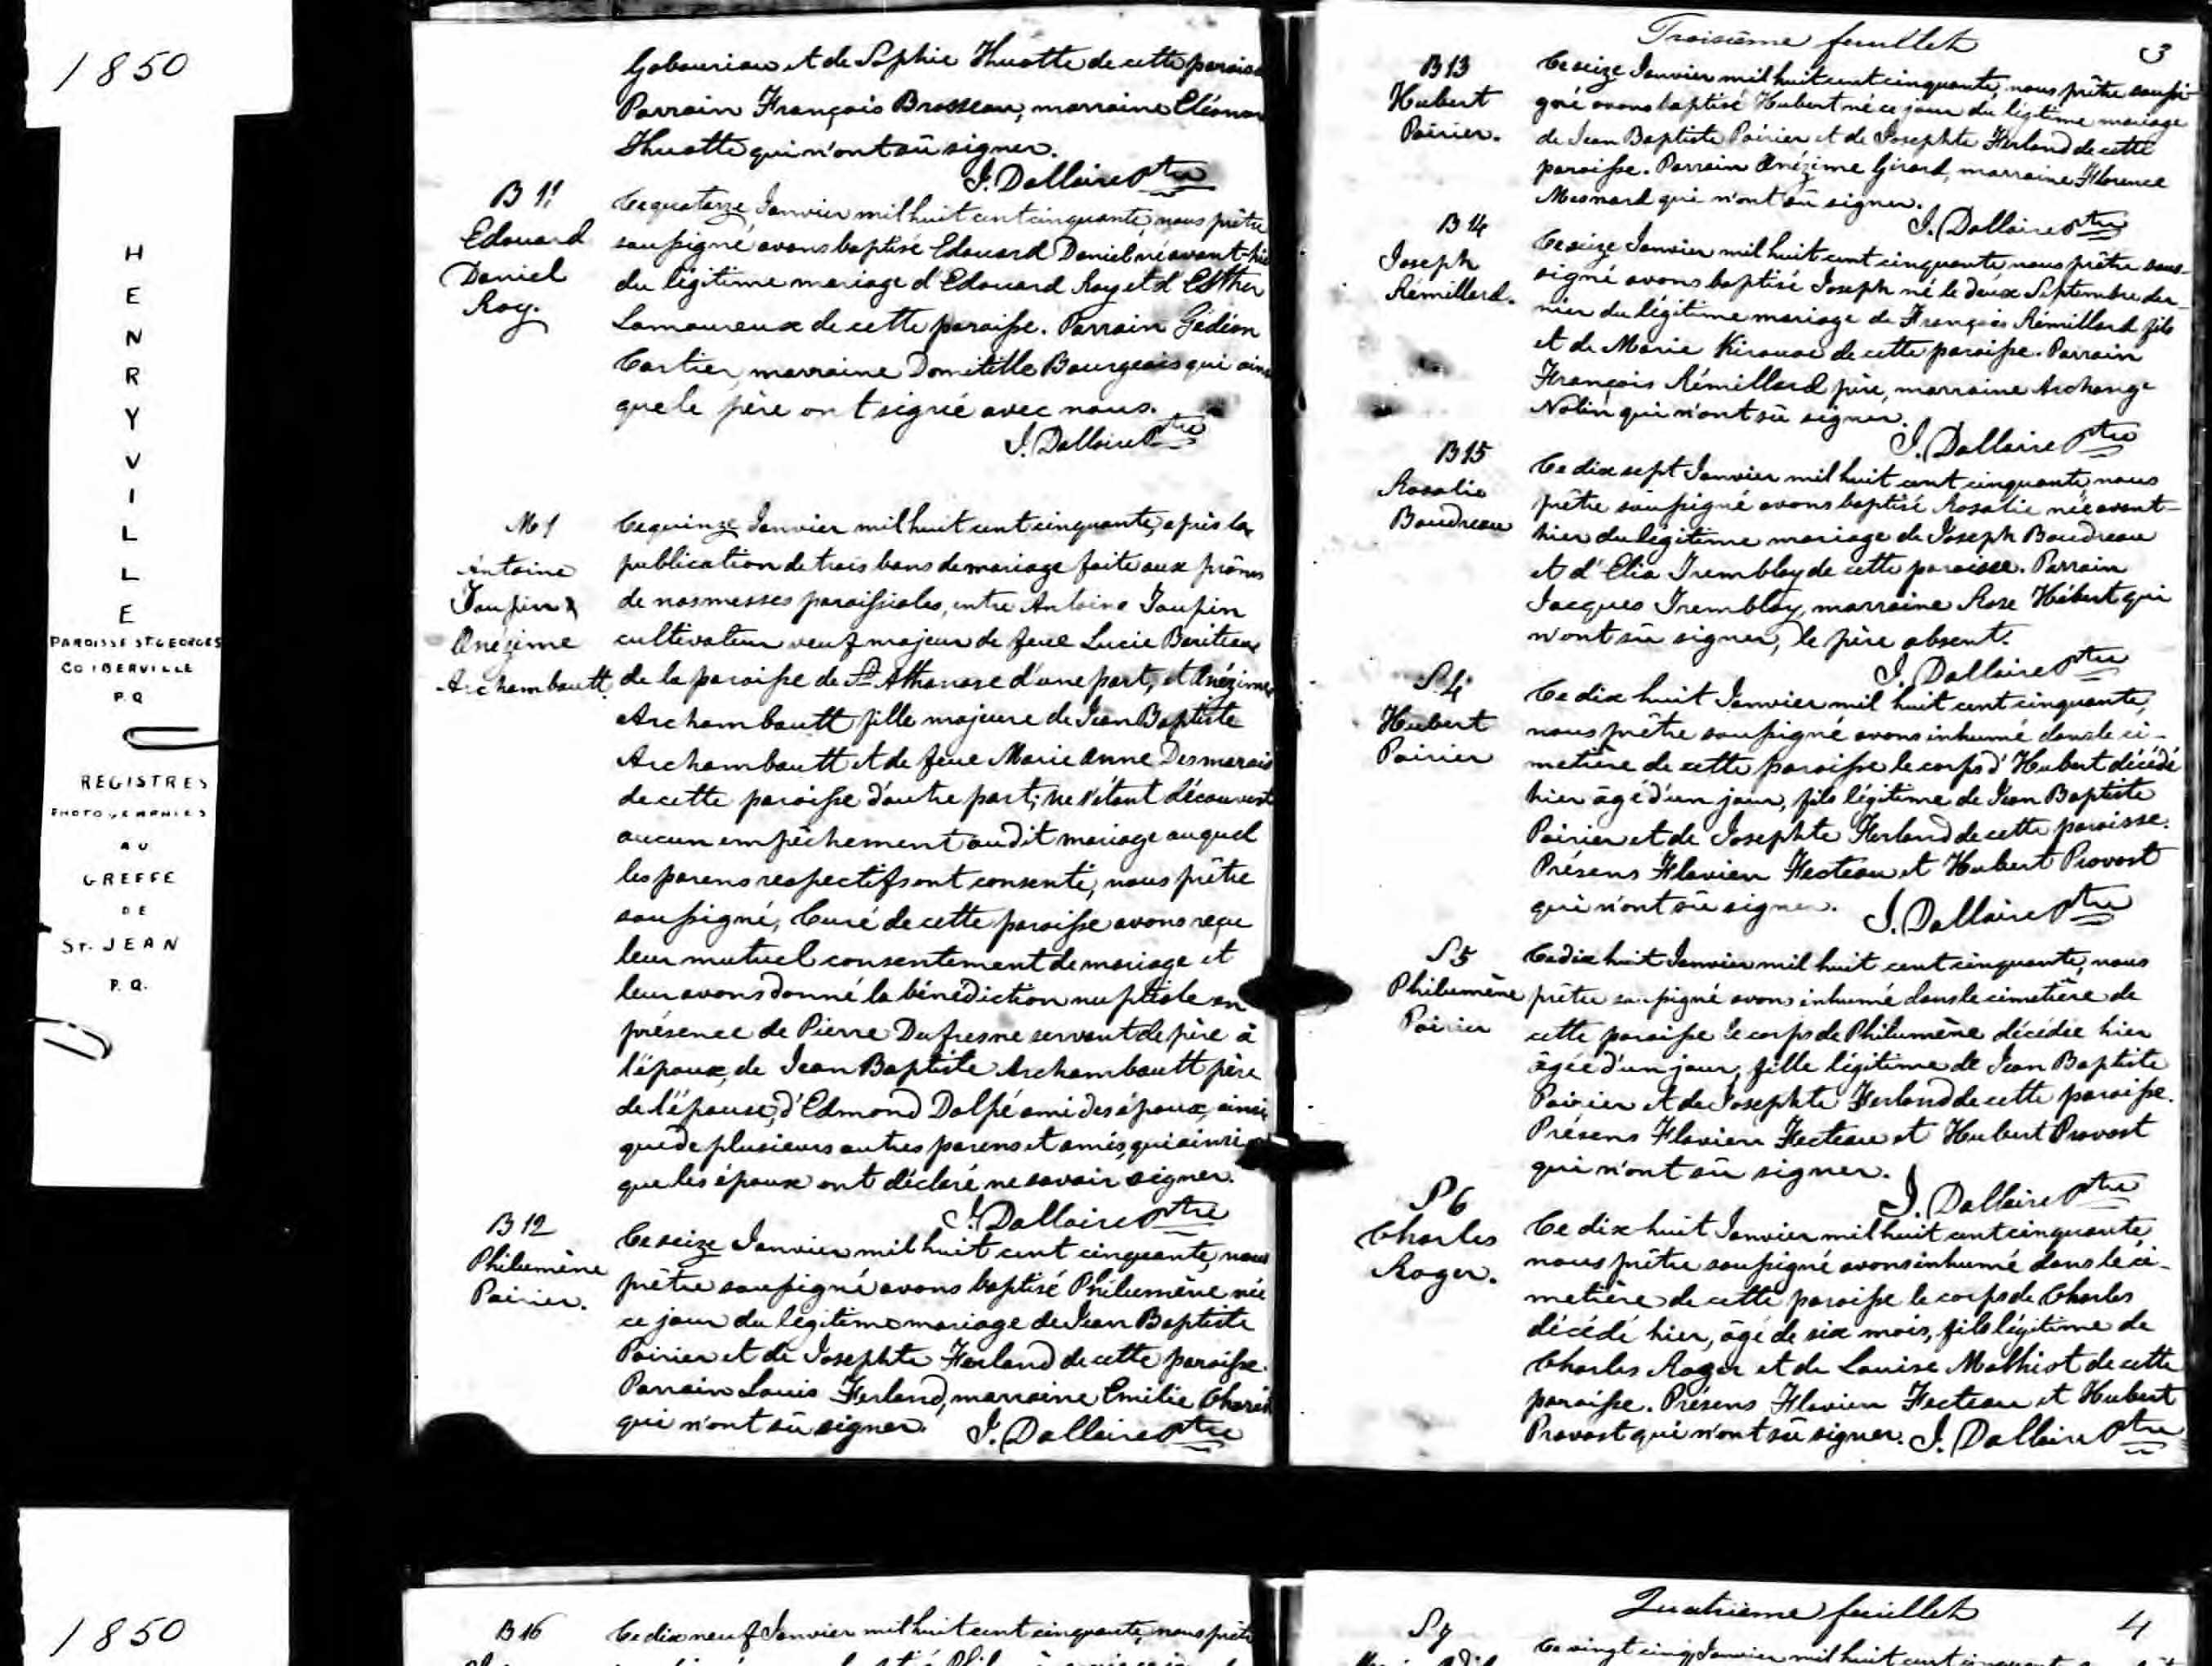 1850
HENRYVILLE
PAROISSE ST. GEORGES
CO IBERVILLE
P.Q
REGISTRES
PHOTOGRAPHIES
AU
GREFFE
DE
St. JEAN
P.Q.
1850
et de Sophie Huotte de cette parois
Parrain François Brosseau, marraine Eléonor
Huotte qui n'ont sû signer.
J. Dallaire Ptre
B 11
Edouard
Daniel
Roy.
Ce quatorze Janvier mil huit cent cinquante, nous prêtre
soussigné avons baptisé Edouard Daniel né avant-hie
du légitime mariage d'Edouard Roy et d'Esther
Lamoureux de cette paroisse. Parrain Gédéon
Cartier, marraine Domitille Bourgeois qui ains
que le père ont signé avec nous.
J. Dallaire Ptre
M 1
Antoine
Joupin &
Onézime
Archambault
Ce quinze Janvier mil huit cent cinquante, après la
publication de trois bans de mariage faite aux prônes
de nos messes paroissiales, entre Antoine Joupin
cultivateur veuf majeur de feue Lucie Bariteau
de la paroisse de St Athanase d'une part, et Onézime
Archambault fille majeure de Jean Baptiste
Archambault et de feue Marie Anne Desmarais
de cette paroisse d'autre part; ne s'étant découvert
aucun empêchement au dit mariage auquel
les parens respectifs ont consenti, nous prêtre
soussigné, Curé de cette paroisse avons reçu
leur mutuel consentement de mariage et
leur avons donné la bénédiction nuptiale en
présence de Pierre Dufresne servant de père à
l'époux, de Jean Baptiste Archambault père
de l'épouse, d'Edmond Dalpé ami des époux, ainsi
que de plusieurs autres parens et amis, qui ainsi
que les époux ont déclaré ne savoir signer.
J. Dallaire Ptre
B 12
Philumène
Poirier.
Ce seize Janvier mil huit cent cinquante, nous
prêtre soussigné avons baptisé Philumène née
ce jour du légitime mariage de Jean Baptiste
Poirier et de Josephte Ferland de cette paroisse.
Parrain Louis Ferland, marraine Emilie
qui n'ont sû signer. J. Dallaire Ptre
Troisième feuillet 3
B 13
Hubert
Poirier.
Ce seize Janvier mil huit cent cinquante, nous prêtre soussi-
gné avons baptisé Hubert né ce jour du légitime mariage
de Jean Baptiste Poirier et de Josephte Ferland de cette
paroisse. Parrain Onézime Girard, marraine Florence
Mesnard qui n'ont sû signer.
J. Dallaire Ptre
B 14
Joseph
Rémillard.
Ce seize Janvier mil huit cent cinquante, nous prêtre sous-
signé avons baptisé Joseph né le deux Septembre der-
nier du légitime mariage de François Rémillard fils
et de Marie Kirouac de cette paroisse. Parrain
François Rémillard père, marraine Archange
Nolin qui n'ont sû signer.
J. Dallaire Ptre
B 15
Rosalie
Boudreau
Ce dix sept Janvier mil huit cent cinquante, nous
prêtre soussigné avons baptisé Rosalie née avant-
hier du légitime mariage de Joseph Boudreau
et d'Elia Tremblay de cette paroisse. Parrain
Jacques Tremblay, marraine Rose Hébert qui
n'ont sû signer, le père absent.
J. Dallaire Ptre
S 4
Hubert
Poirier
Ce dix huit Janvier mil huit cent cinquante,
nous prêtre soussigné avons inhumé dans le ci-
metière de cette paroisse le corps d'Hubert décédé
hier âgé d'un jour, fils légitime de Jean Baptiste
Poirier et de Josephte Ferland de cette paroisse.
Présens Flavien Fecteau et Hubert Provost
qui n'ont sû signer. J. Dallaire Ptre
S 5
Philumène
Poirier
Ce dix huit Janvier mil huit cent cinquante, nous
prêtre soussigné avons inhumé dans le cimetière de
cette paroisse le corps de Philumène décédée hier
âgée d'un jour, fille légitime de Jean Baptiste
Poirier et de Josephte Ferland de cette paroisse.
Présens Flavien Fecteau et Hubert Provost
qui n'ont sû signer.
J. Dallaire Ptre
S 6
Charles
Roger.
Ce dix huit Janvier mil huit cent cinquante
nous prêtre soussigné avons inhumé dans le ci-
metière de cette paroisse le corps de Charles
décédé hier, âgé de six mois, fils légitime de
Charles Roger et de Louise Mathiot de cette
paroisse. Présens Flavien Fecteau et Hubert
Provost qui n'ont sû signer. J. Dallaire Ptre
B 16
Ce dix neuf Janvier mil huit cent cinquante, nous prêtre
Quatrième feuillet 4
S 7
Ce vingt cinq Janvier mil huit cent cinquante